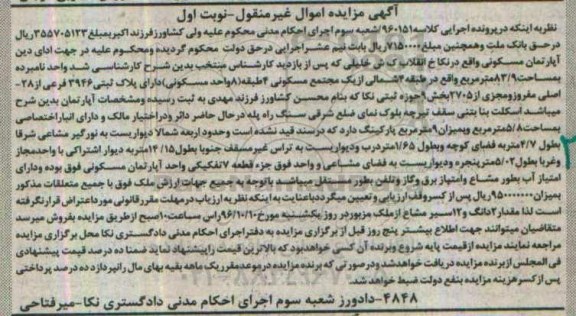 آگهی مزایده اموال غیرمنقول-نوبت اول
نظربه اینکه درپرونده اجرایی کلاسه ۹۶۰۱۵۱/شعبه سوم اجرای احکام مدنی محکوم علیه ولی کشاورز فرزند اکبر بمبلغ ۳۵۵۷۰۵۱۲۳ ریال
درحق بانک ملت وهمچنین مبلغ ۷۱۵۰۰۰۰ ریال بابت نیم عشراجرایی درحق دولت محکوم گردیده ومحکوم علیه در جهت ادای دین
آپارتمان مسکونی واقع درنکا خ انقلاب که پس از بازدید کارشناس منتخب بدین شرح کارشناسی شد واحد نامبرده
بمساحت ۸۲/۹ مترمربع واقع درطبقه ۴ شمالی از یک مجتمع مسکونی ۴ طبقه (۸ واحد مسکونی) دارای پلاک ثبتی ۳۹۴۶ فرعی از ۲۸-
اصلی مفروزومجزی از ۲۷۰۵ بخش حوزه ثبتی نکا که بنام محسن کشاورز فرزند مهدی به ثبت رسیده ومشخصات آپارتمان بدین شرح
میباشد اسکلت بنا بتنی سقف تیرچه بلوک نمای ضلع شرقی سنگ راه پله درحال حاضر دائر ودراختیار مالک و دارای انباراختصاصی
بمساحت ۵/۸ مترمربع وبمیزان ۹ مترمربع پارکینگ دارد که درسند قید نشده است وحدود اربعه شمالا دیواریست به نورگیر مشاعی شرقا
بطول ۴/۷ متربه فضای کوچه وبطول ۱/۶۵ متردرب ودیواریست به تراس غیرمسقف جنوبا بطول ۱۴/۱۵ متربه دیوار اشتراکی با واحدمجاز
وغربا بطول ۵/۰۲ مترپنجره ودیواریست به فضای مشاعی و واحد فوق جزء قطعه ۷ تفکیکی واحد آپارتمان مسکونی فوق بوده ودارای
امتیاز آب بطور مشاع وامتیاز برق وگاز وتلفن بطور مستقل میباشد باتوجه به جمیع جهات ارزش ملک فوق با جمیع متعلقات مذکور
بمیزان ریال پس از کسروقف ارزیابی وتعیین میگردد باعنایت به اینکه نظریه ارزیاب درمهلت مقررقانونی مورداعتراض قرارنگرفته
است لذا مقدار ۲ دانگ و ۱۲ سیر مشاع ازملک مزبوردر روز یکشنبه مورخ ۹۶/۱۰/۱۰ راس ساعت ۱۰ صبح ازطریق مزایده بفروش میرسد
متقاضیان میتوانند جهت اطلاع بیشتر پنج روز قبل از برگزاری مزایده به دفتراجرای احکام مدنی دادگستری نکا محل برگزاری مزایده
مراجعه نمایند مزایده ازقیمت پایه شروع وبرنده آن کسی خواهدبود که بالاترین قیمت راپیشنهاد نماید ضمنا ده درصد قیمت پیشنهادی
فی المجلس ازبرنده مزایده دریافت خواهدشد ودرصورتی که برنده مزایده درموعدمقرریک ماهه بقیه بهای مال رانپردازد ده درصد پرداختی
پس از کسرهزینه مزایده بنفع دولت ضبط خواهدشد.
۴۸۴۸-دادورز شعبه سوم اجرای احکام مدنی دادگستری نکا-میرفتاحی